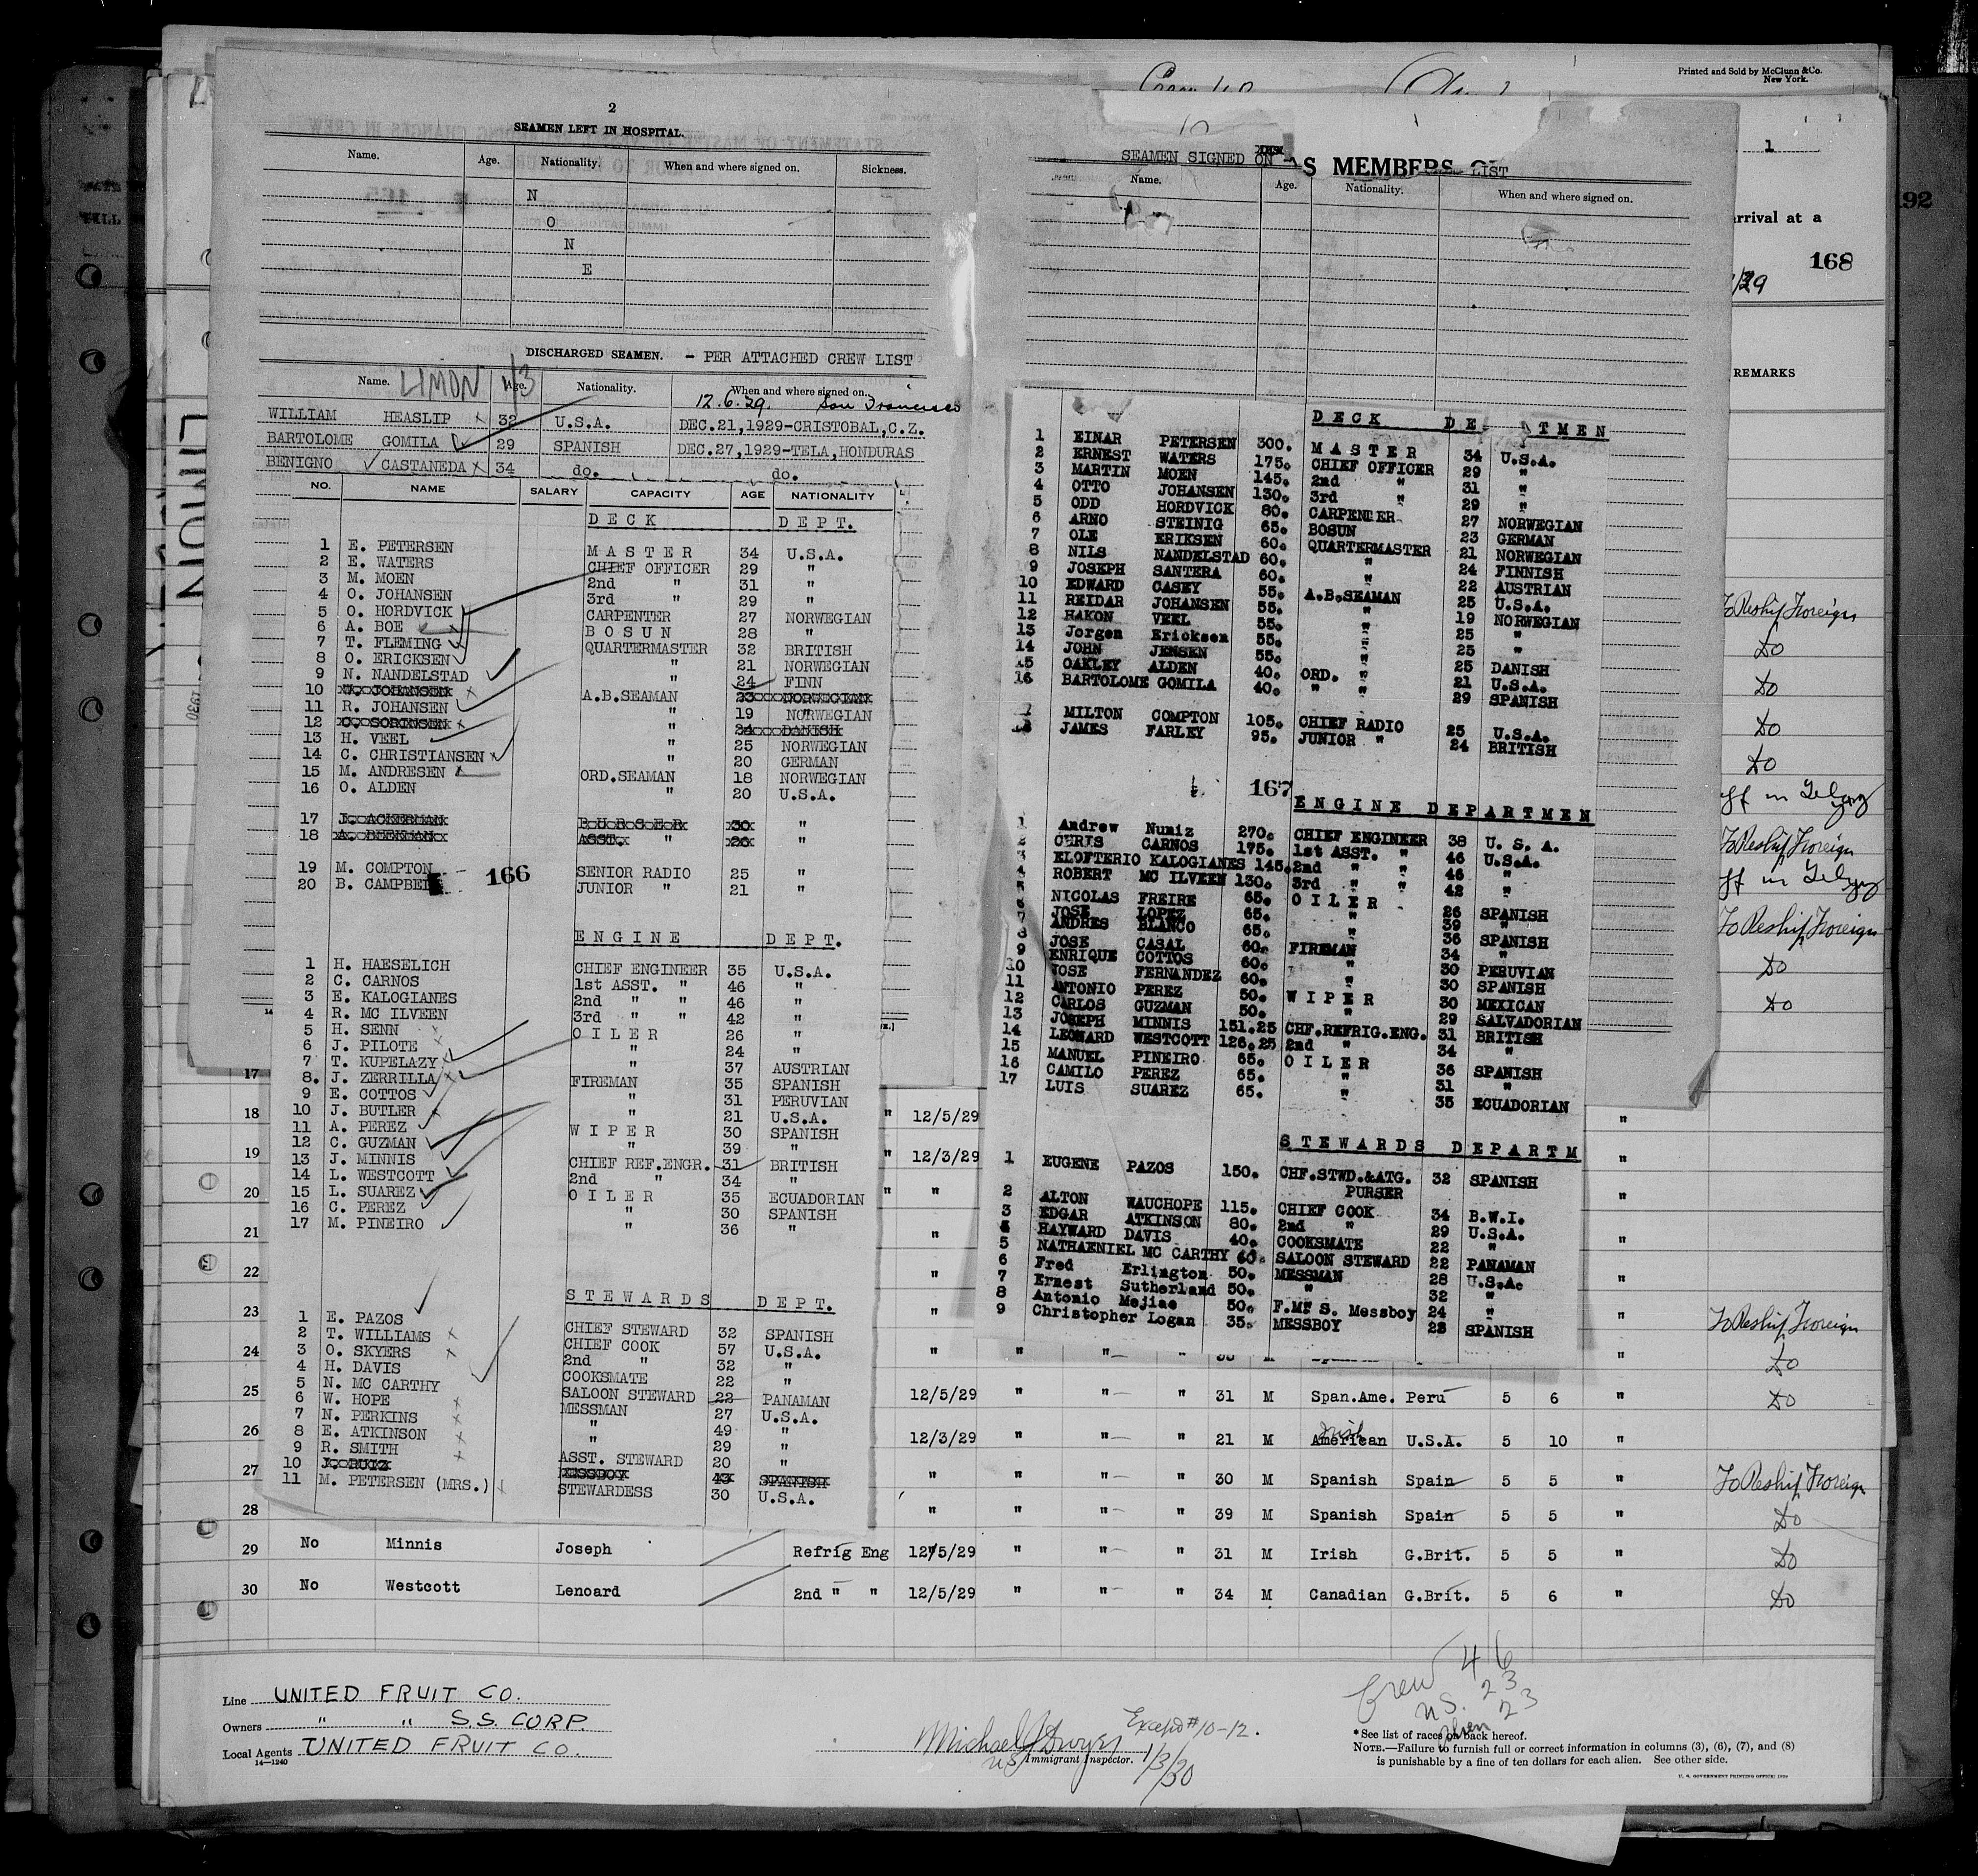 Printed and Sold by McClunn & Co.
New York.
2
SEAMEN LEFT IN HOSPITAL.
Name. Age. Nationality. When and where signed on. Sickness.
N
O
N
E
DISCHARGED SEAMEN. - PER ATTACHED CREW LIST
Name. LIMON 1/3 Age. Nationality. When and where signed on.
12.6.29. San Francisco
WILLIAM HEASLIP x 32 U.S.A. DEC.21,1929-CRISTOBAL,C.Z.
BARTOLOME GOMILA 29 SPANISH DEC.27,1929-TELA,HONDURAS
BENIGNO CASTANEDA x 34 do. do.
NO. NAME SALARY CAPACITY AGE NATIONALITY
DECK DEPT.
1 E. PETERSEN MASTER 34 U.S.A.
2 E. WATERS CHIEF OFFICER 29 "
3 M. MOEN 2nd " 31 "
4 O. JOHANSEN 3rd " 29 "
5 O. HORDVICK CARPENTER 27 NORWEGIAN
6 A. BOE BOSUN 28 "
7 T. FLEMING QUARTERMASTER 32 BRITISH
8 O. ERICKSEN " 21 NORWEGIAN
9 N. NANDELSTAD " 24 FINN
10 W. JOHANSEN A.B.SEAMAN 23 NORWEGIAN
11 R. JOHANSEN " 19 NORWEGIAN
12 C. SORINSEN " 24 DANISH
13 H. VEEL " 25 NORWEGIAN
14 C. CHRISTIANSEN " 20 GERMAN
15 M. ANDRESEN ORD.SEAMAN 18 NORWEGIAN
16 O. ALDEN " 20 U.S.A.
17 J. ACKERMAN PURSER 30 "
18 A. BEEKMAN ASST. " 26 "
19 M. COMPTON SENIOR RADIO 25 "
20 B. CAMPBELL JUNIOR " 21 "
166
ENGINE DEPT.
1 H. HAESELICH CHIEF ENGINEER 35 U.S.A.
2 C. CARNOS 1st ASST. " 46 "
3 E. KALOGIANES 2nd " " 46 "
4 R. MC ILVEEN 3rd " " 42 "
5 H. SENN OILER 26 "
6 J. PILOTE " 24 "
7 T. KUPELAZY " 37 AUSTRIAN
8. J. ZERRILLA FIREMAN 35 SPANISH
9 E. COTTOS " 31 PERUVIAN
10 J. BUTLER " 21 U.S.A.
11 A. PEREZ WIPER 30 SPANISH
12 C. GUZMAN " 39 "
13 J. MINNIS CHIEF REF.ENGR. 31 BRITISH
14 L. WESTCOTT 2nd " 34 "
15 L. SUAREZ OILER 35 ECUADORIAN
16 C. PEREZ " 30 SPANISH
17 M. PINEIRO " 36 "
STEWARDS DEPT.
1 E. PAZOS CHIEF STEWARD 32 SPANISH
2 T. WILLIAMS CHIEF COOK 57 U.S.A.
3 O. SKYERS 2nd " 32 "
4 H. DAVIS COOKSMATE 22 "
5 N. MC CARTHY SALOON STEWARD 22 PANAMAN
6 W. HOPE MESSMAN 27 U.S.A.
7 N. PERKINS " 49 "
8 E. ATKINSON " 29 "
9 R. SMITH ASST. STEWARD 20 "
10 J. RUIZ MESSBOY 43 SPANISH
11 M. PETERSEN (MRS.) STEWARDESS 30 U.S.A.
SEAMEN SIGNED ON
AS MEMBERS OF
LIST
Name. Age. Nationality. When and where signed on.
DECK DE TMEN
1 EINAR PETERSEN 300. MASTER 34 U.S.A.
2 ERNEST WATERS 175. CHIEF OFFICER 29 "
3 MARTIN MOEN 145. 2nd " 31 "
4 OTTO JOHANSEN 130. 3rd " 29 "
5 ODD HORDVICK 80. CARPENTER 27 NORWEGIAN
6 ARNO STEINIG 65. BOSUN 23 GERMAN
7 OLE ERIKSEN 60. QUARTERMASTER 21 NORWEGIAN
8 NILS NANDELSTAD 60. " 24 FINNISH
9 JOSEPH SANTERA 60. " 22 AUSTRIAN
10 EDWARD CASEY 55. A.B.SEAMAN 25 U.S.A.
11 REIDAR JOHANSEN 55. " 19 NORWEGIAN
12 HAKON VEEL 55. " 25 "
13 Jorgen Ericksen 55. " 25 "
14 JOHN JENSEN 55. " 25 DANISH
15 OAKLEY ALDEN 40. ORD. " 21 U.S.A.
16 BARTOLOME GOMILA 40. " " 29 SPANISH
MILTON COMPTON 105. CHIEF RADIO 25 U.S.A.
JAMES FARLEY 95. JUNIOR " 24 BRITISH
167
ENGINE DEPARTMEN
1 Andrew Nuniz 270. CHIEF ENGINEER 38 U. S. A.
2 CHRIS CARNOS 175. 1st ASST. " 46 U.S.A.
3 ELOFTERIO KALOGIANES 145. 2nd " " 46 "
4 ROBERT MC ILVEEN 130. 3rd " " 42 "
5 NICOLAS FREIRE 65. OILER 26 SPANISH
6 JOSE LOPEZ 65. " 39 "
7 ANDRES BLANCO 65. " 36 SPANISH
8 JOSE CASAL 60. FIREMAN 34 "
9 ENRIQUE COTTOS 60. " 30 PERUVIAN
10 JOSE FERNANDEZ 60. " 30 SPANISH
11 ANTONIO PEREZ 50. WIPER 30 MEXICAN
12 CARLOS GUZMAN 50. " 29 SALVADORIAN
13 JOSEPH MINNIS 151.25 CHF.REFRIG.ENG. 31 BRITISH
14 LEONARD WESTCOTT 126.25 2nd " 34 "
15 MANUEL PINEIRO 65. OILER 36 SPANISH
16 CAMILO PEREZ 65. " 31 "
17 LUIS SUAREZ 65. " 35 ECUADORIAN
STEWARDS DEPARTM
1 EUGENE PAZOS 150. CHF.STWD.&ATG. PURSER 32 SPANISH
2 ALTON WAUCHOPE 115. CHIEF COOK 34 B.W.I.
3 EDGAR ATKINSON 80. 2nd " 29 U.S.A.
4 HAYWARD DAVIS 40. COOKSMATE 22 "
5 NATHAENIEL MC CARTHY 60. SALOON STEWARD 22 PANAMAN
6 Fred Erlington 50. MESSMAN 28 U.S.A.
7 Ernest Sutherland 50. " 32 "
8 Antonio Mejiae 50. F.M. S. Messboy 24 "
9 Christopher Logan 35. MESSBOY 28 SPANISH
1
arrival at a
168
/29
REMARKS
To Reship Foreign
Do
Do
Do
Do
To Reship Foreign
To Reship Foreign
Do
Do
17
18 " 12/5/29 "
19 " 12/3/29 "
20 " " "
21 " "
22 " "
23 " " To Reship Foreign
24 " " " " " Do
25 12/5/29 " " " 31 M Span.Ame. Peru 5 6 " Do
26 12/3/29 " " " 21 M Irish American U.S.A. 5 10 "
27 " " " " 30 M Spanish Spain 5 5 " To Reship Foreign
28 " " " " 39 M Spanish Spain 5 5 " Do
29 No Minnis Joseph Refrig Eng 12/5/29 " " " 31 M Irish G.Brit. 5 5 " Do
30 No Westcott Lenoard 2nd " " 12/5/29 " " " 34 M Canadian G.Brit. 5 6 " Do
Crew 46
US. 23
Alien 23
Line UNITED FRUIT CO.
Owners " " S.S. CORP.
Local Agents UNITED FRUIT CO.
14-1240
Michael Dwyer Except #10-12.
US Immigrant Inspector. 1/3/30
*See list of races on back hereof.
NOTE.—Failure to furnish full or correct information in columns (3), (6), (7), and (8)
is punishable by a fine of ten dollars for each alien. See other side.
U. S. GOVERNMENT PRINTING OFFICE: 1929
LIMON
192